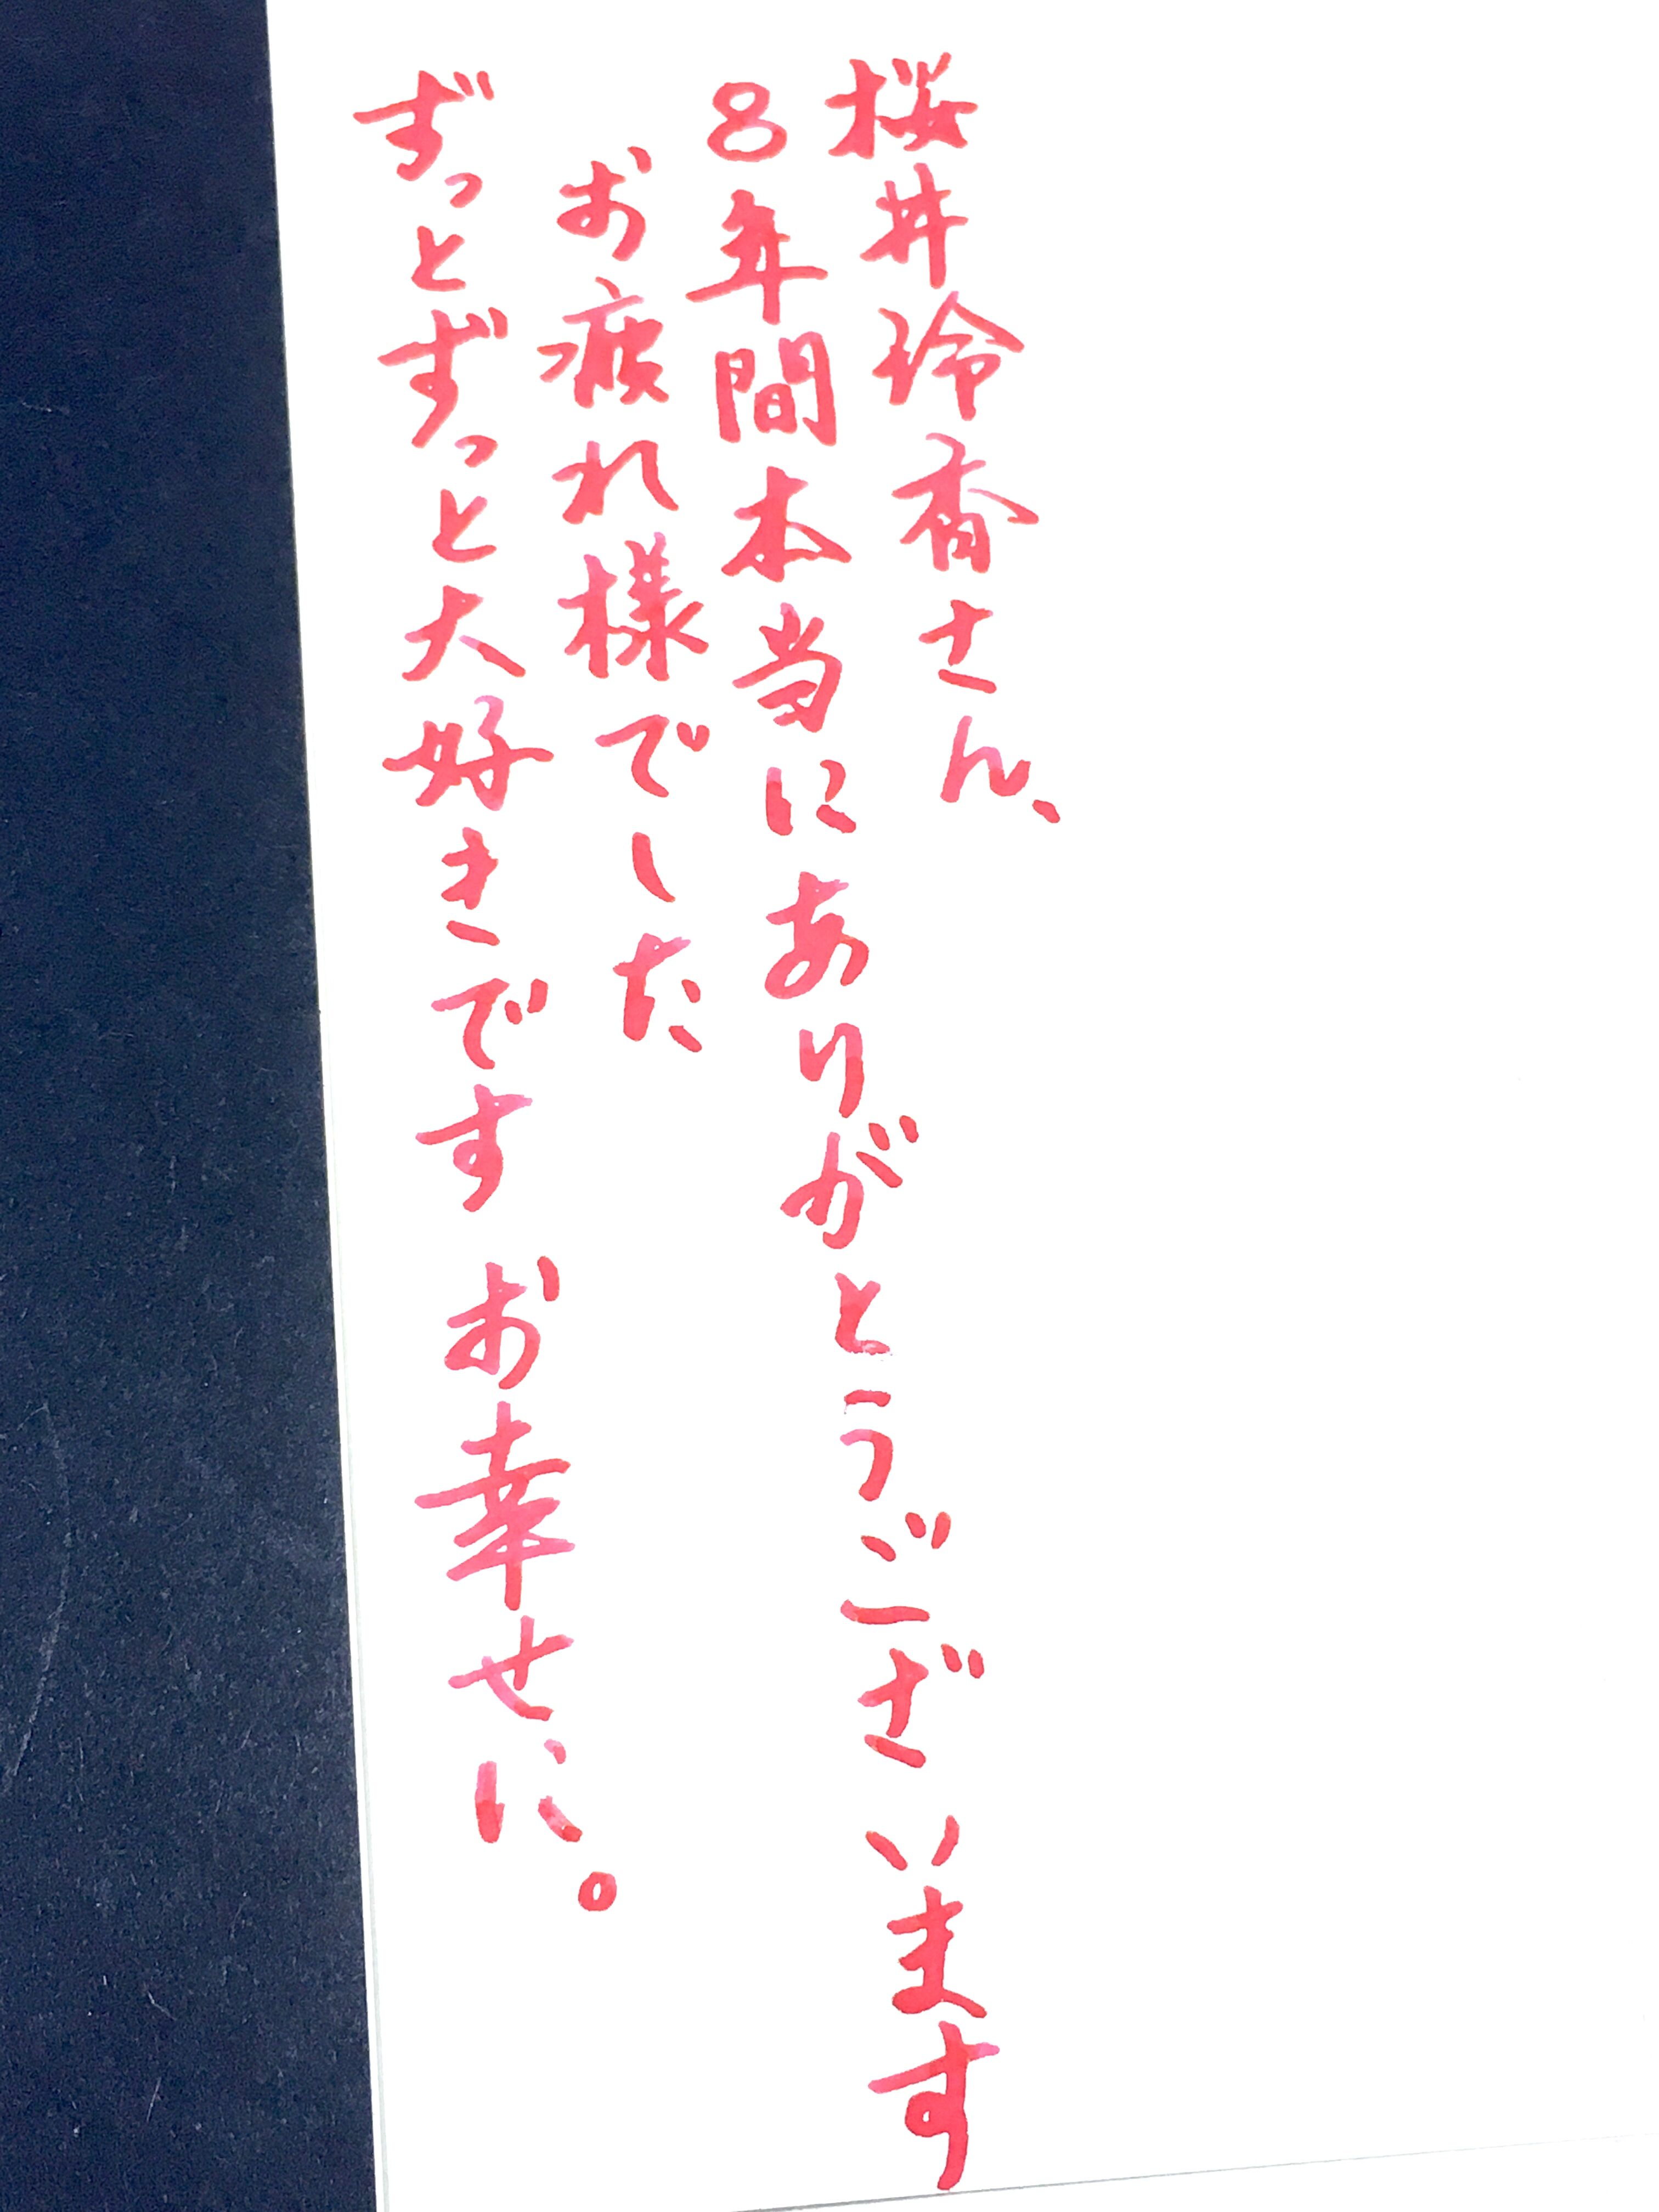 桜井玲香さん、
8年間本当にありがとうございます
お疲れ様でした
ずっとずっと大好きです お幸せに。